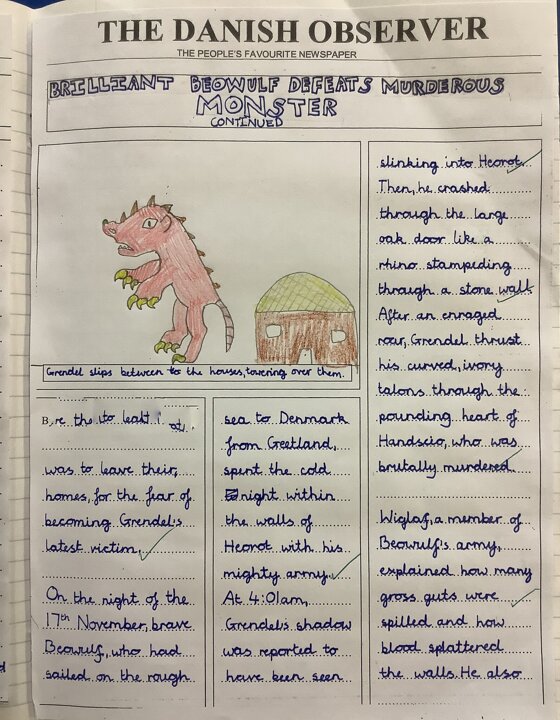 THE DANISH OBSERVER
THE PEOPLE'S FAVOURITE NEWSPAPER
BRILLIANT BEOWULF DEFEATS MURDEROUS
MONSTER
CONTINUED
Grendel slips between to the houses, towering over them.
re the to
was to leave their,
homes, for the fear of
becoming Grendel's
latest victim.
On the night of the
17th November, brave
Beowulf, who had
sailed on the rough
sea to Denmark
from Geetland,
spent the cold
night within
the walls of
Heorot with his
mighty army.
At 4:01am,
Grendels shadow
was reported to
have been seen
slinking into Heorot.
Then, he crashed
through the large
oak door like a
rhino stampeding
through a stone wall.
After an enraged
roar, Grendel thrust
his curved, ivory
talons through the
pounding heart of
Handscio, who was
brutally murdered.
Wiglaf, a member of
Beowulf's army,
explained how many
gross guts were
spilled and how
blood splattered
the walls. He also